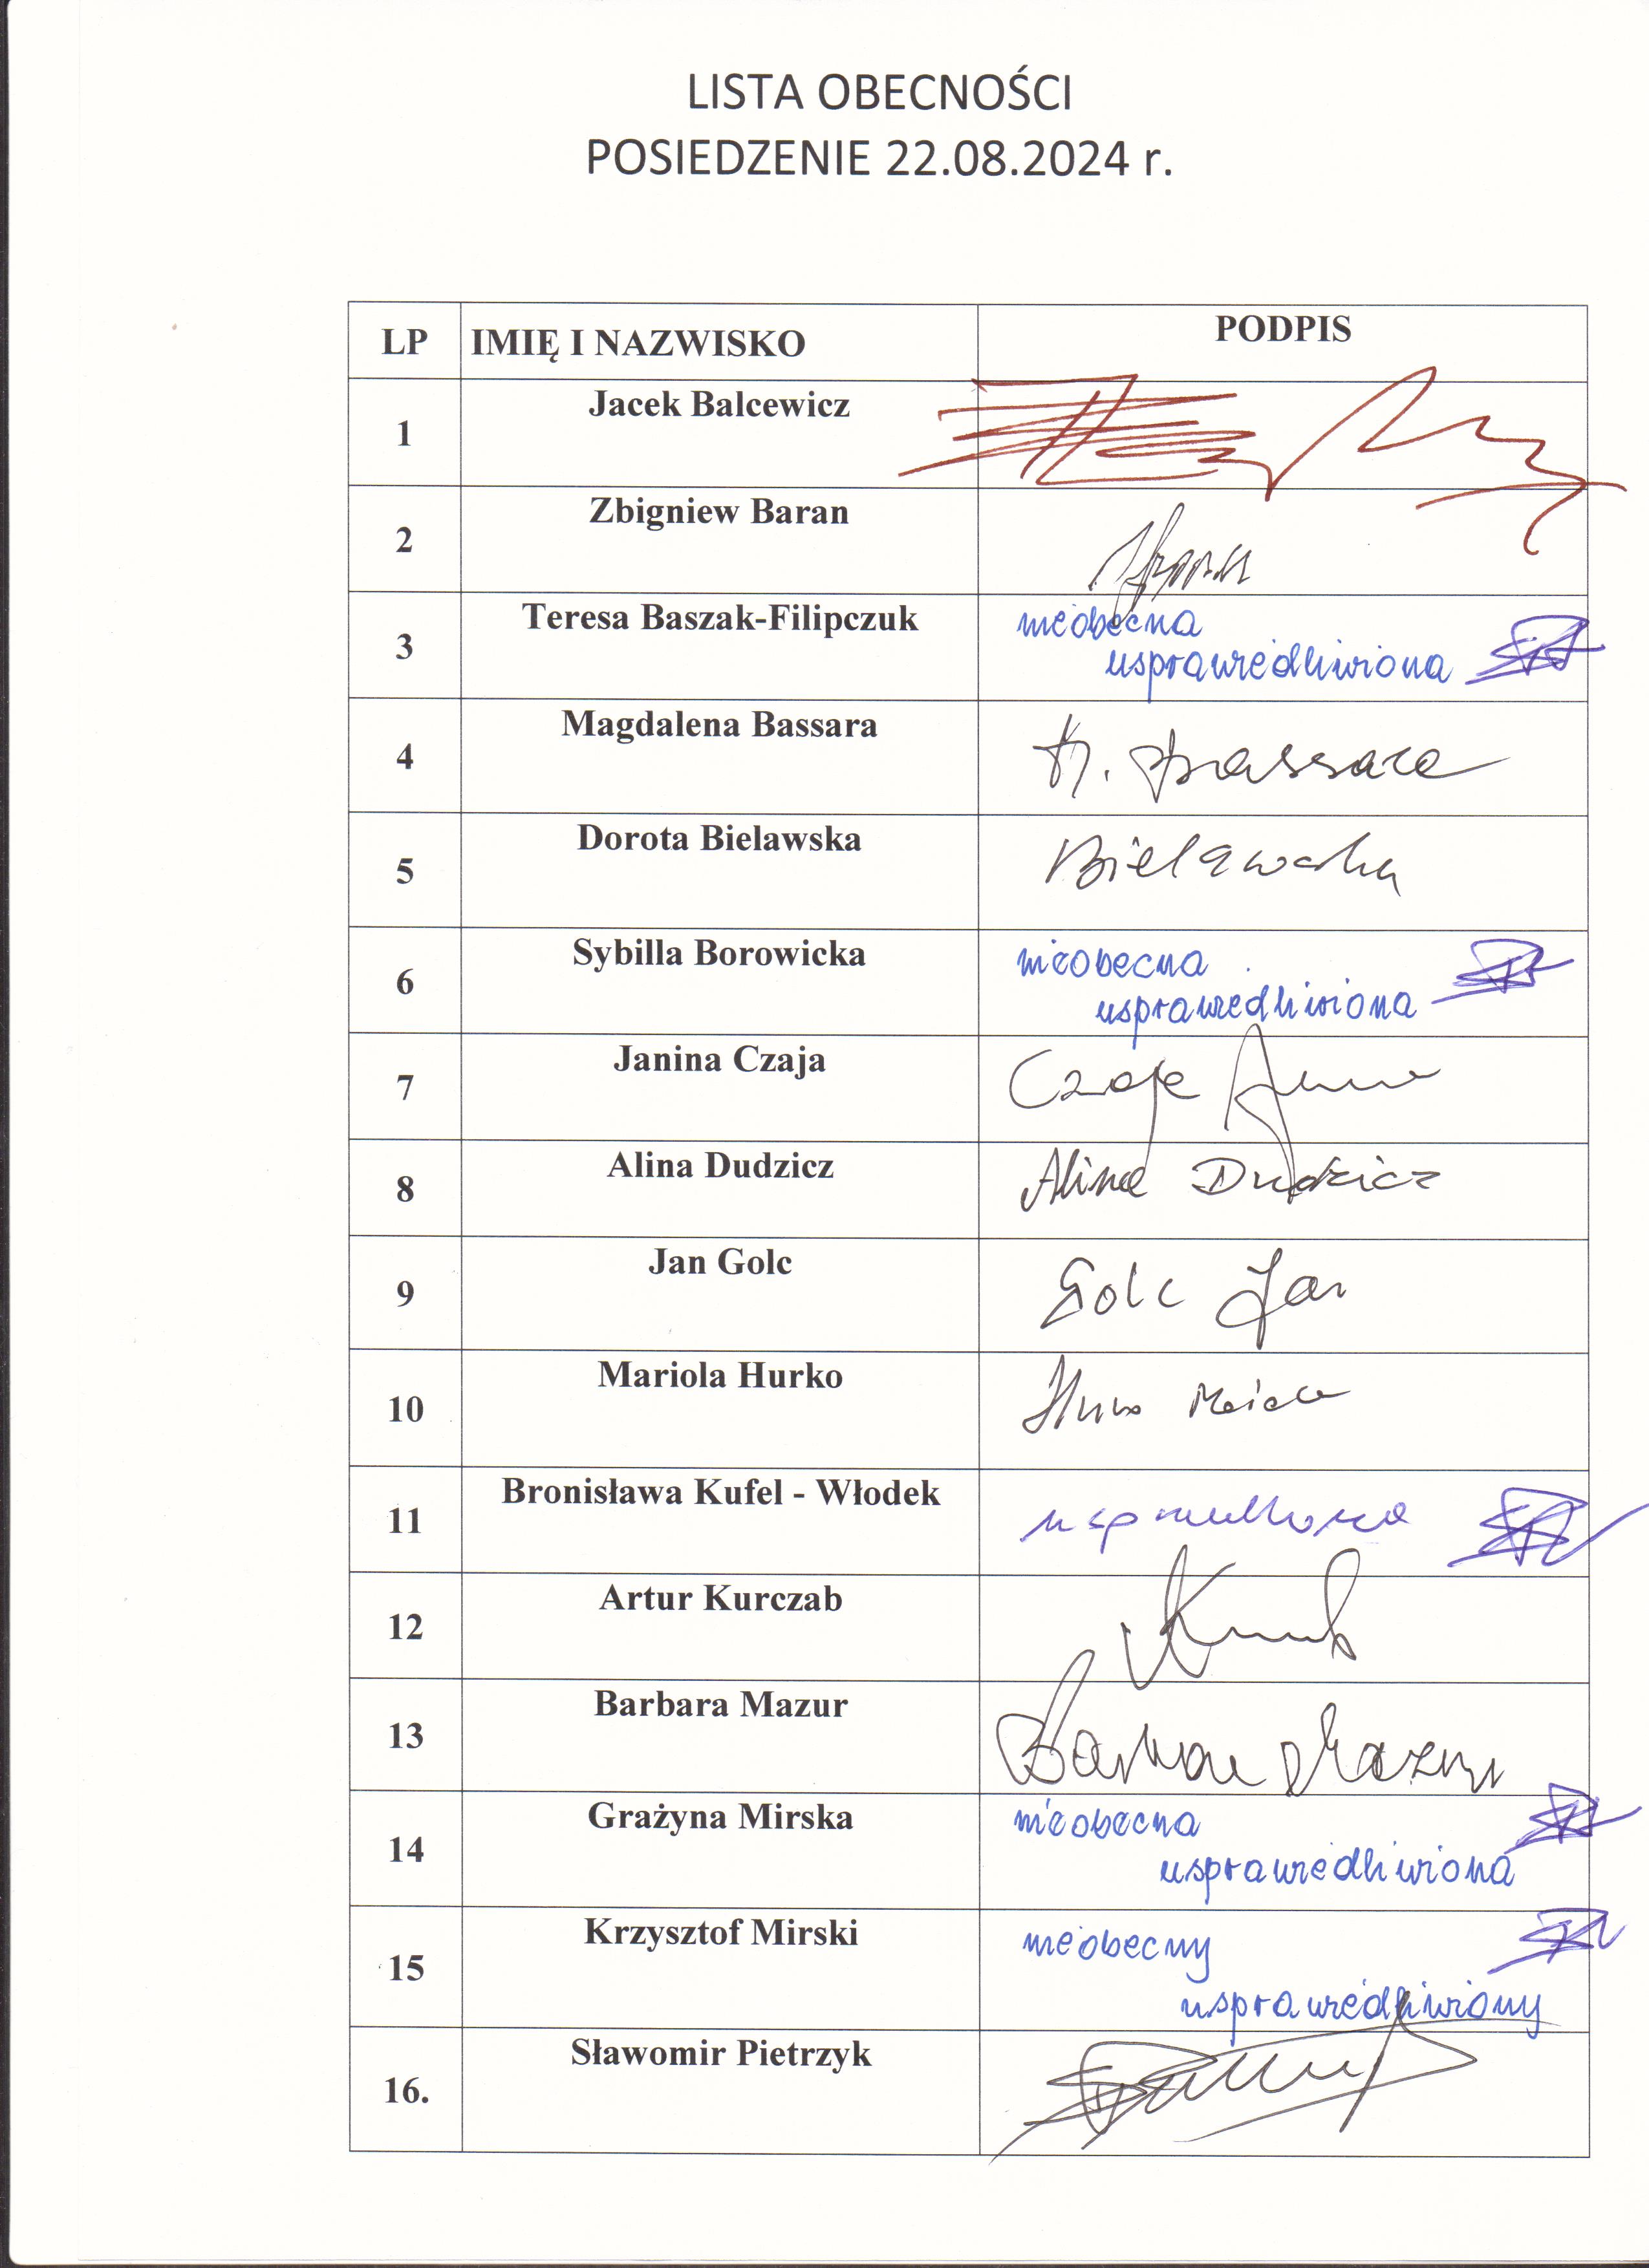 LISTA OBECNOŚCI
POSIEDZENIE 22.08.2024 r.
LP IMIĘ I NAZWISKO PODPIS
1 Jacek Balcewicz
2 Zbigniew Baran
3 Teresa Baszak-Filipczuk nieobecna
usprawiedliwiona
4 Magdalena Bassara M. Bassara
5 Dorota Bielawska Bielawska
6 Sybilla Borowicka nieobecna
usprawiedliwiona
7 Janina Czaja Czaja
8 Alina Dudzicz Alina Dudzicz
9 Jan Golc Golc Jan
10 Mariola Hurko
11 Bronisława Kufel - Włodek
12 Artur Kurczab
13 Barbara Mazur Barbara Mazur
14 Grażyna Mirska nieobecna
usprawiedliwiona
15 Krzysztof Mirski nieobecny
usprawiedliwiony
16. Sławomir Pietrzyk